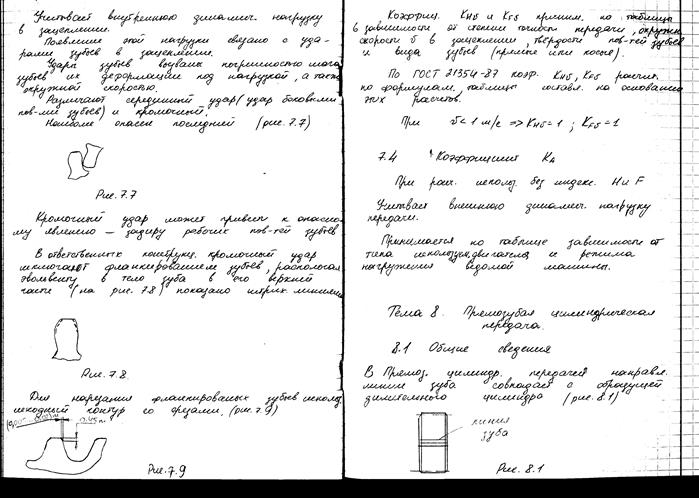 Учитывает внутреннюю динамич. нагрузку
в зацеплении.
Появление этой нагрузки связано с уда-
рами зубьев в зацеплении.
Удары зубьев вызваны погрешностью
зубьев их деформации под нагрузкой, а также
окружной скоростью.
Различают серединный удар (удар боковыми
пов-ми зубьев) и кромочный.
Наиболее опасен последний (рис. 7.7)
Рис. 7.7
Кромочный удар может привести к опасно-
му явлению – задиру рабочих пов-тей зубьев
В ответственных конструкц. кромочный удар
исключают фланкированием зубьев, располагая
эвольвенту в тело зуба в его верхней
части (на рис. 7.8) показано штрих. линиями
Рис. 7.8.
Для нарезания фланкированых зубьев использ.
исходный контур со срезами. (рис. 7.9)
0,45m
Рис. 7.9
Коэффиц. KHδ и KFδ приним. по таблицы
в зависимости от степени точности передачи, окружн.
скорости δ в зацеплении, твердости пов-тей зубьев
и вида зубьев (прямые или косые).
По ГОСТ 21354-87 коэф. KHδ, KFδ расчит.
по формулам, таблицы составл. на основании
этих расчетов.
При υ<1 м/с => KHδ=1 ; KFδ=1
7.4 Коэффициент KA
При расч. использ. без индекс. H и F
Учитывает внешнюю динамич. нагрузку
передачи.
Принимается по таблице зависимости от
типа использук. двигателя и режима
нагружения ведомой машины.
Тема 8. Прямозубая цилиндрическая
передача.
8.1 Общие сведения
В прямоз. цилиндр. передачей направл.
линии зуба совпадает с образующей
делительного цилиндра (рис. 8.1)
линия
зуба
Рис. 8.1